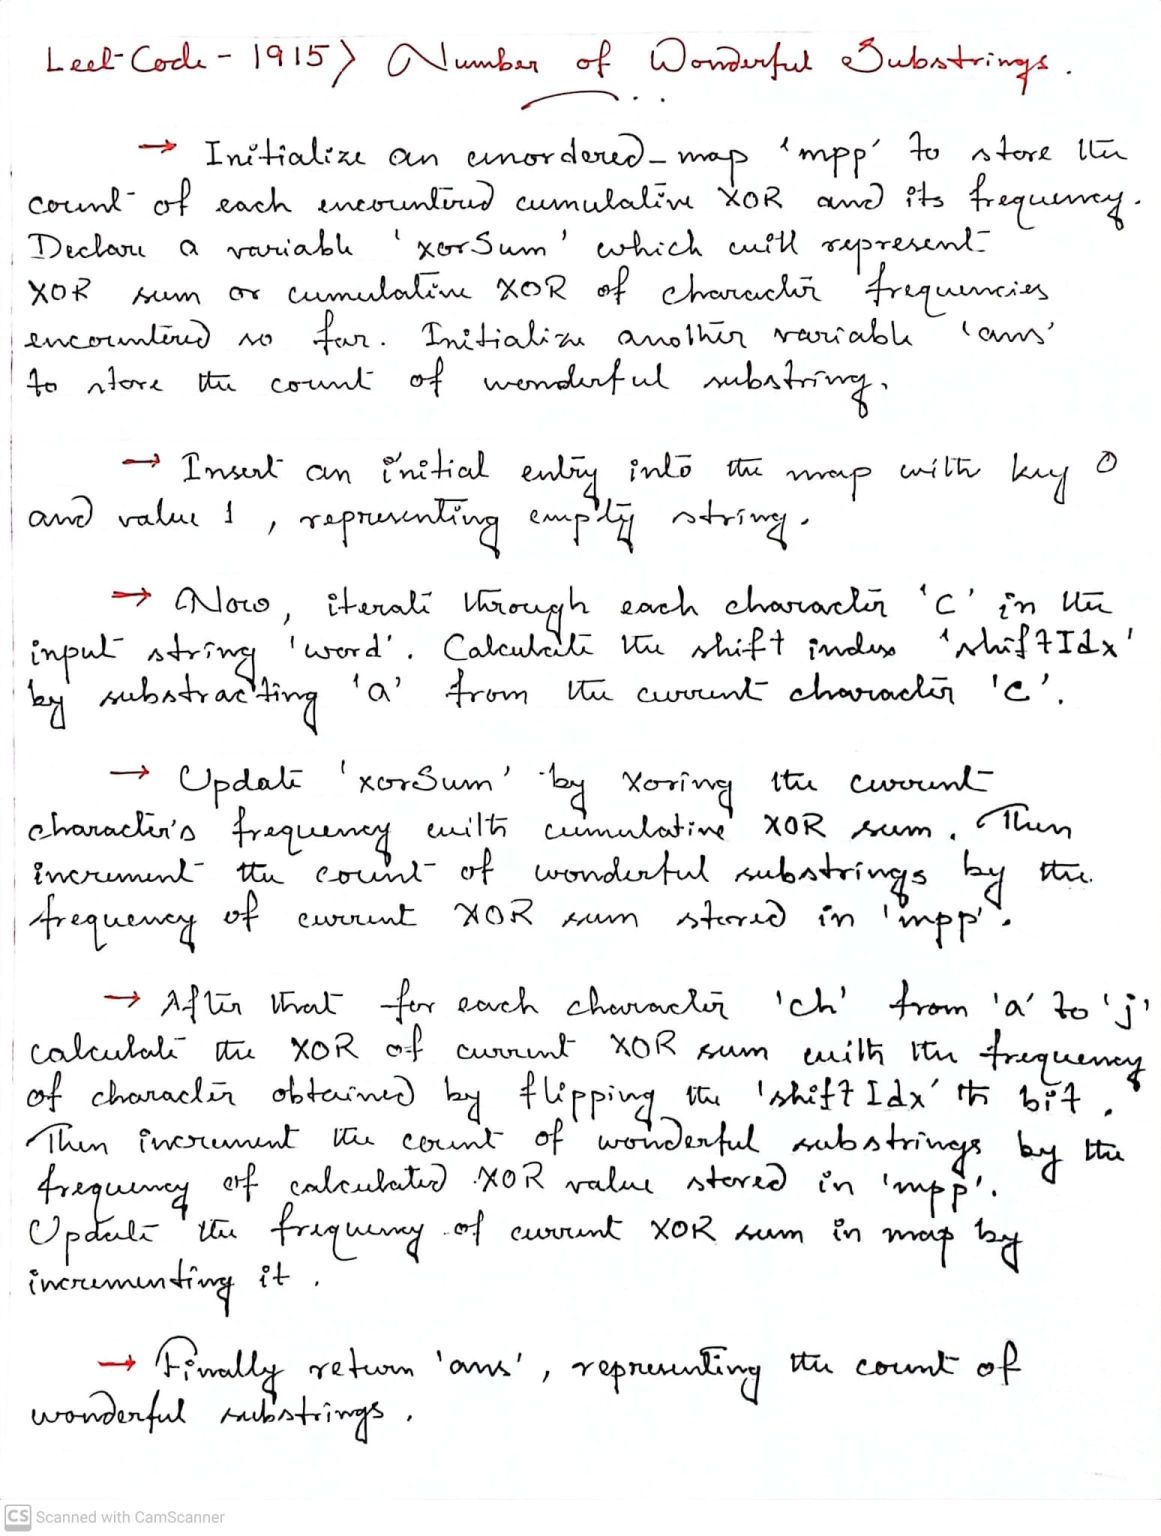 Leet-Code - 1915) Number of Wonderful Substrings.
→ Initialize an unordered_map 'mpp' to store the
count of each encountered cumulative XOR and its frequency.
Declare a variable 'xorSum' which will represent
XOR sum or cumulative XOR of character frequencies
encountered so far. Initialize another variable 'ans'
to store the count of wonderful substring.
→ Insert an initial entry into the map with key 0
and value 1, representing empty string.
→ Now, iterate through each character 'c' in the
input string 'word'. Calculate the shift index 'shiftIdx'
by substracting 'a' from the current character 'c'.
→ Update 'xorSum' by Xoring the current
character's frequency with cumulative XOR sum. Then
increment the count of wonderful substrings by the
frequency of current XOR sum stored in 'mpp'.
→ After that for each character 'ch' from 'a' to 'j'
calculate the XOR of current XOR sum with the frequency
of character obtained by flipping the 'shiftIdx' th bit.
Then increment the count of wonderful substrings by the
frequency of calculated XOR value stored in 'mpp'.
Update the frequency of current XOR sum in map by
incrementing it.
→ Finally return 'ans', representing the count of
wonderful substrings.
CS Scanned with CamScanner